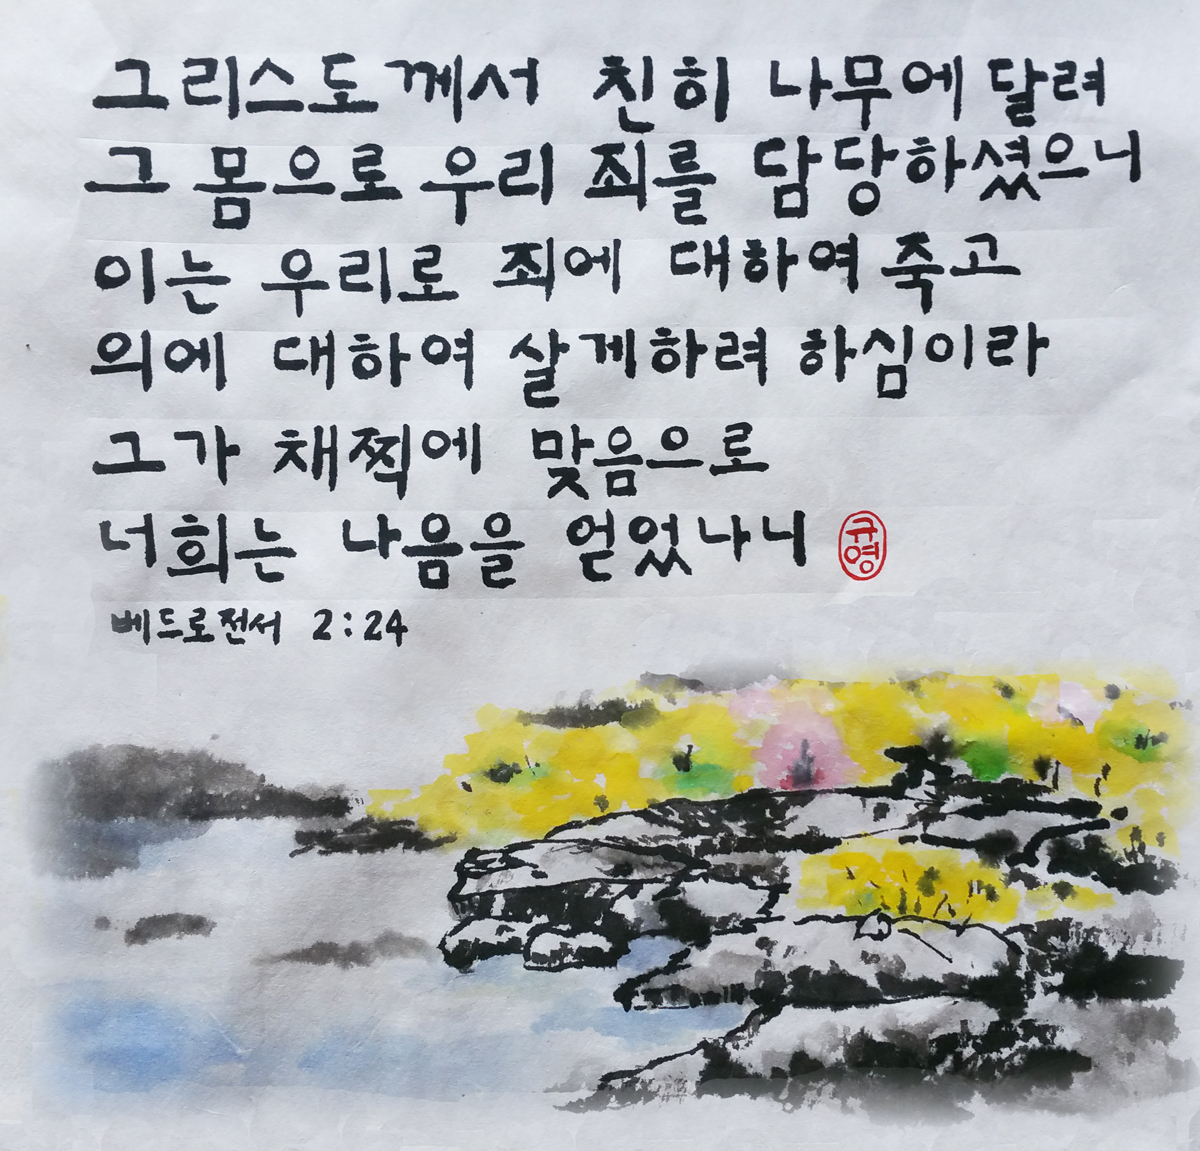 그리스도께서 친히 나무에 달려
그 몸으로 우리 죄를 담당하셨으니
이는 우리로 죄에 대하여 죽고
의에 대하여 살게하려 하심이라
그가 채찍에 맞음으로
너희는 나음을 얻었나니
규영
베드로전서 2:24